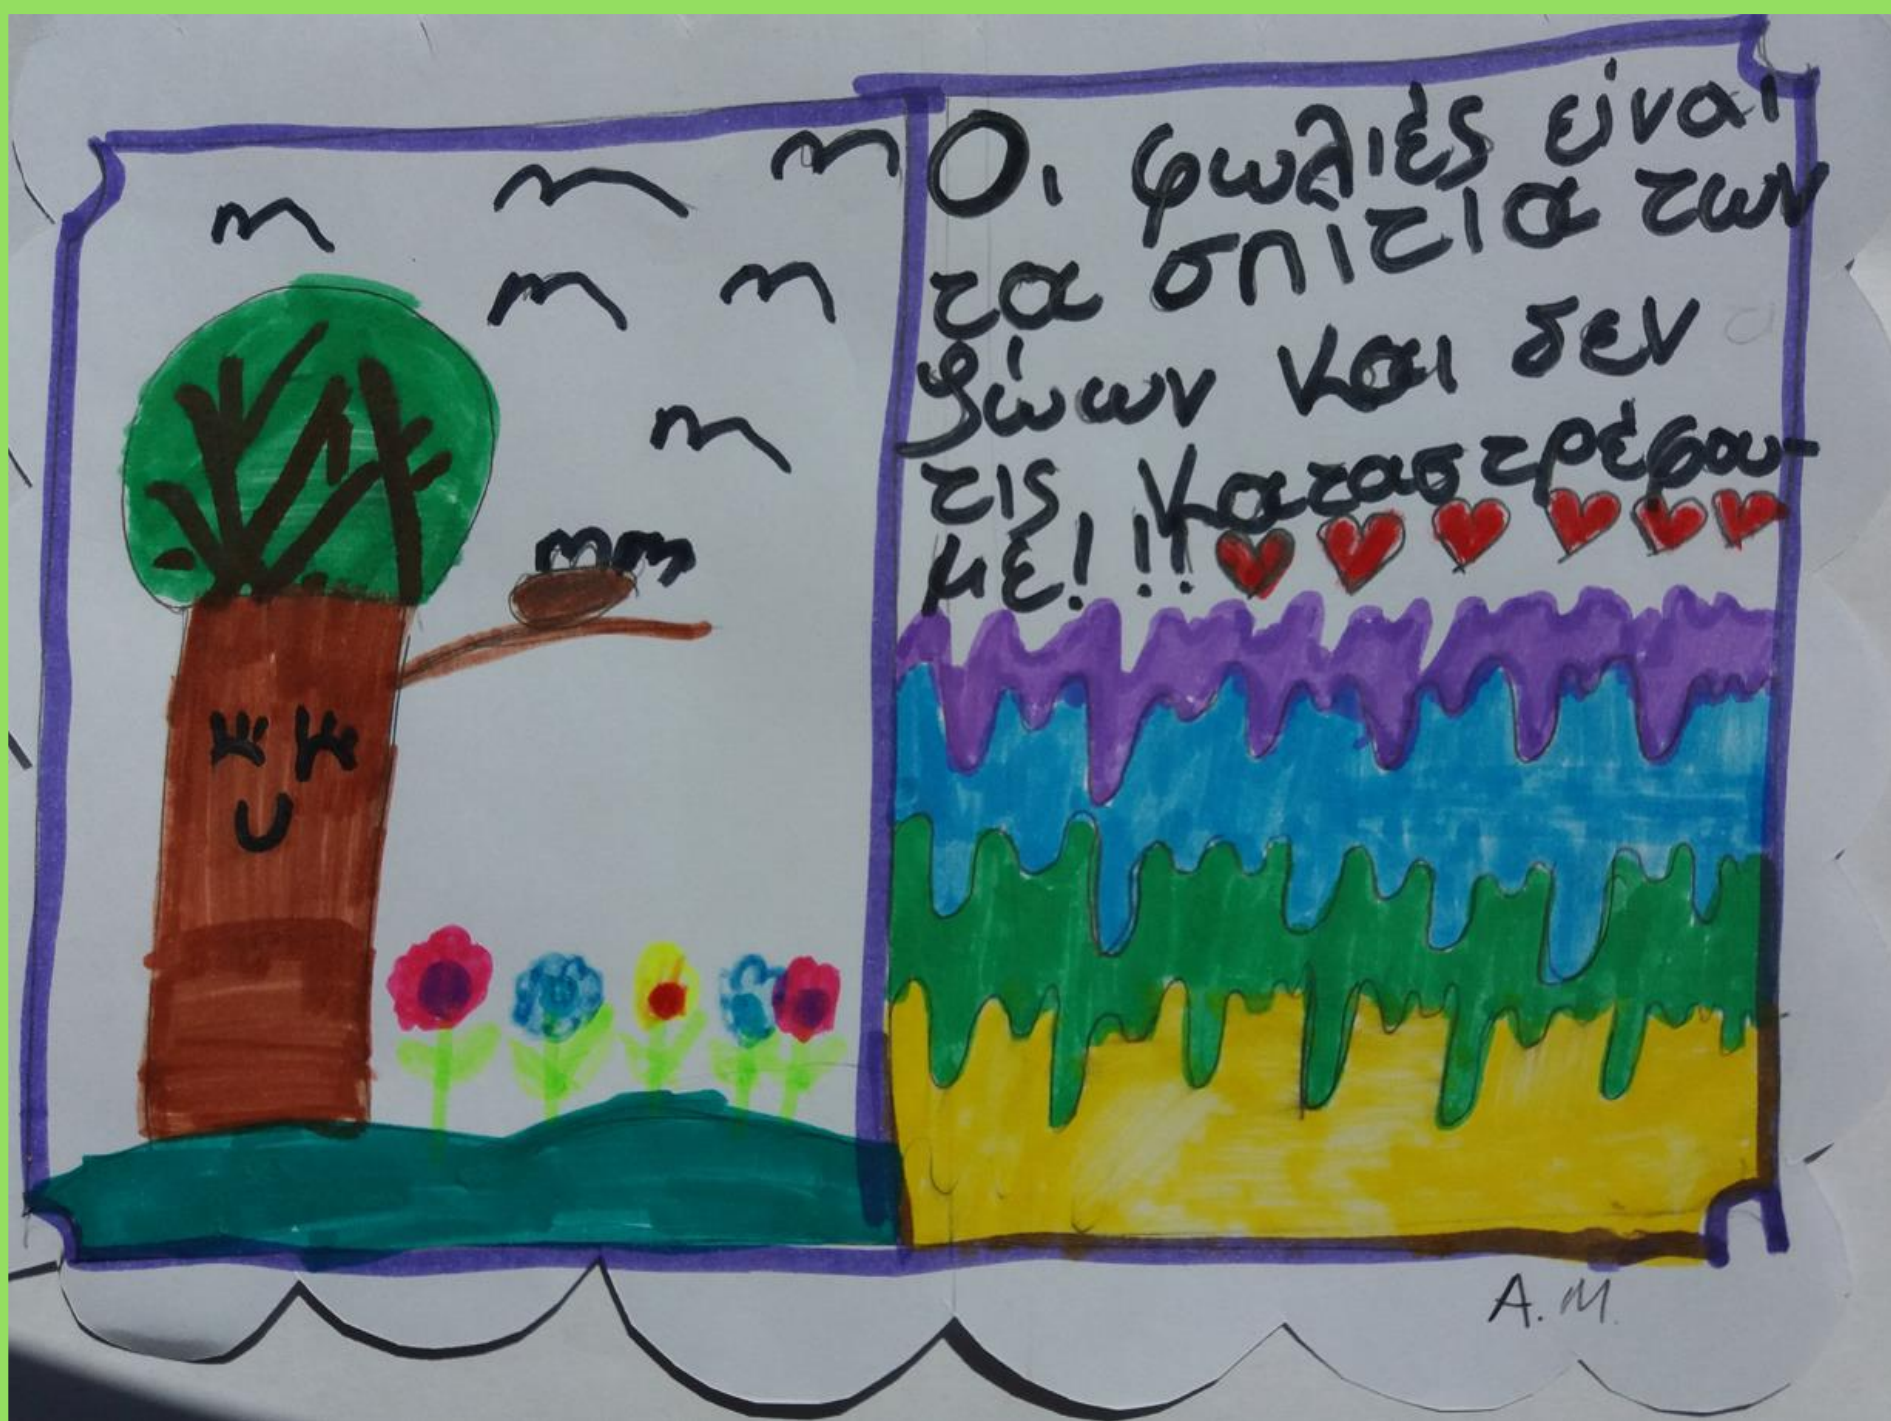 Οι φωλιές είναι
τα σπίτια των
ζώων και δεν
τις καταστρέφου-
με!!!
Α.Μ.